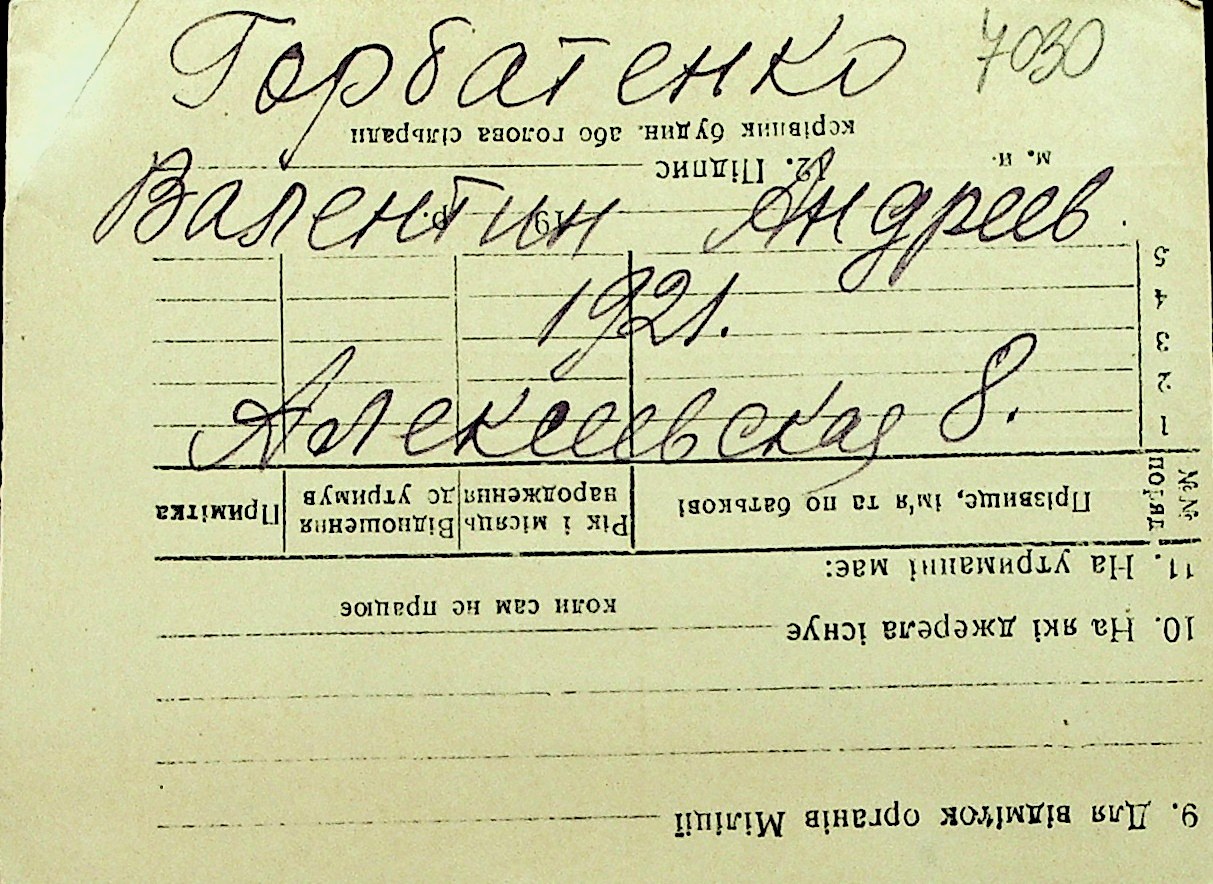 Горбатенко 7030
Валентин Андреев
1921.
Алексеевская 8.
9. Для відміток органів Міліції
10. На які джерела існує
коли сам не працює
11. На утриманні має:
№№ порядк Прізвище, ім'я та по батькові Рік і місяць народження Відношення до утримув Примітка
1
2
3
4
5
19 р.
м. п. 12. Підпис
керівник будин. або голова сільради